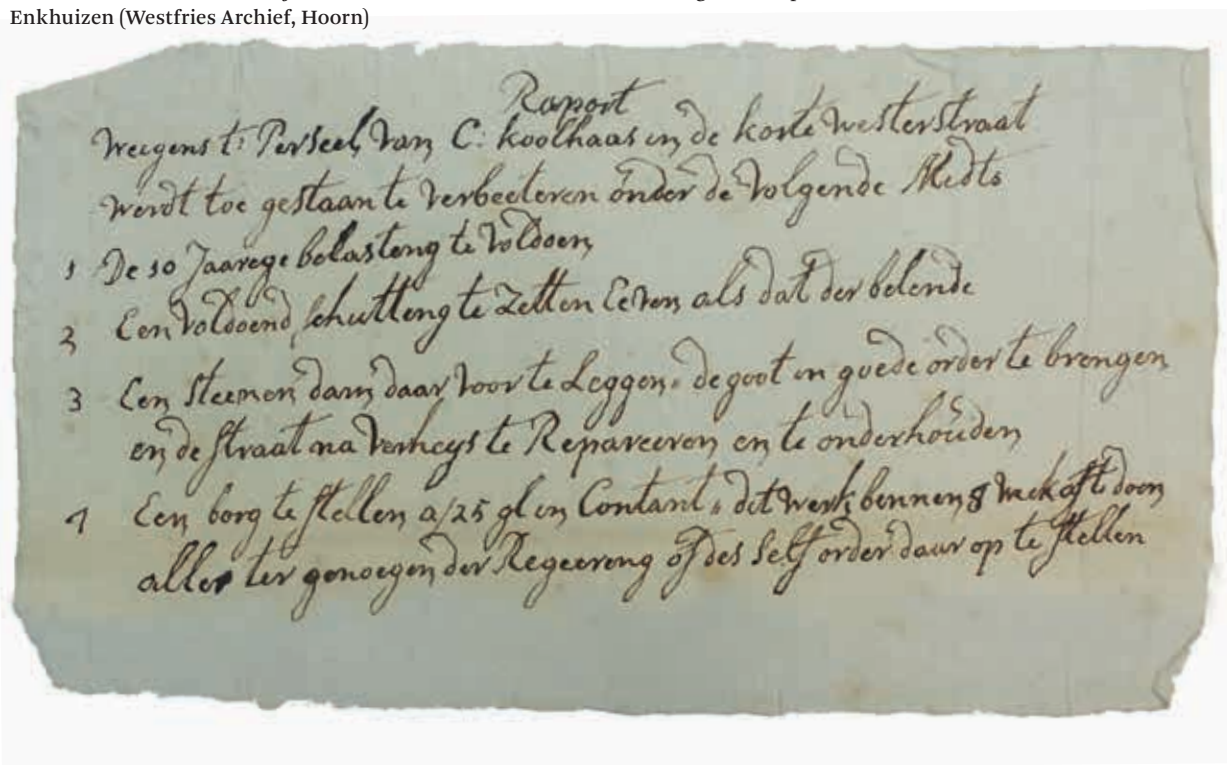 Enkhuizen (Westfries Archief, Hoorn)
Raport
Weegens t: Perseel van C: koolhaas in de korte westerstraat
werdt toe gestaan te verbeeteren onder de volgende Midts
1 De 10 Jaarege belasteng te voldoen
2 Een voldoend schutteng te zetten Even als dat der belende
3 Een steenen dam daar voor te Leggen, de goot in goede order te brengen
en de straat na te Repareeren en te onderhouden
4 Een borg te stellen a/25 gl in Contant, dit werk bennen 8 week af te doen
alles ter genoegen der Regeereng of des self order daar op te stellen